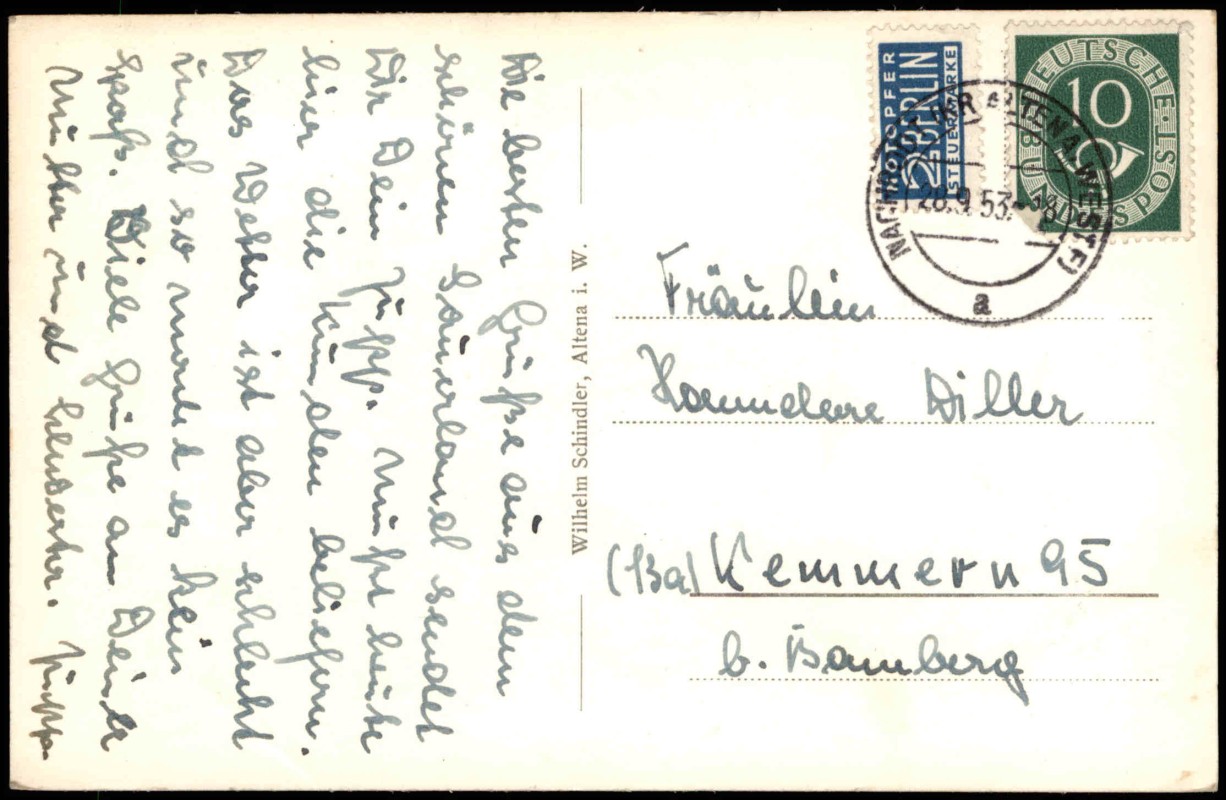 Die besten Grüße aus dem
schönen Sauerland sendet
Dir Dein Jupp. Mußt heute
hier die Kunden beliefern.
Das Wetter ist aber schlecht
und so macht es kein
Spaß. Viele Grüße an Deine
Mutter und Schwester. Jupp.
Wilhelm Schindler, Altena i. W.
NOTOPFER
2 BERLIN
STEUERMARKE
DEUTSCHE POST
10
BUNDESPOST
NACHRODT ÜBER ALTENA (WESTF)
28.9.53.-18
a
Fräulein
Hannelore Diller
(13a) Kemmern 95
b. Bamberg